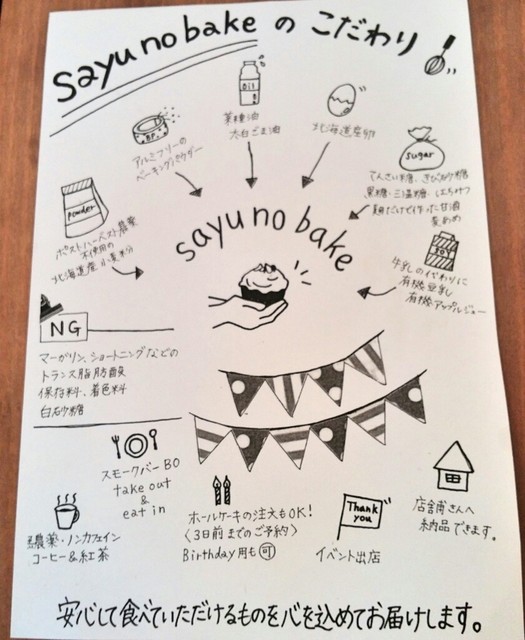 sayu no bake の こだわり!
Oil
菜種油
太白ごま油
BP
アルミフリーの
ベーキングパウダー
北海道産卵
sugar
てんさい糖、きび砂糖
黒糖・三温糖、はちみつ
麹だけで作った甘酒
powder
ポストハーベスト農薬
不使用の
北海道産小麦粉
sayu no bake
SOY
牛乳の代わりに
有機豆乳
有機アップルジュー
NG
マーガリン、ショートニングなどの
トランス脂肪酸
保存料、着色料
白砂糖
スモークバーBO
take out
&
eat in
無農薬・ノンカフェイン
コーヒー&紅茶
ホールケーキの注文もOK!
〈3日前までのご予約〉
Birthday用も可
Thank you
イベント出店
店舗さんへ
納品できます。
安心して食べていただけるものを心を込めてお届けします。